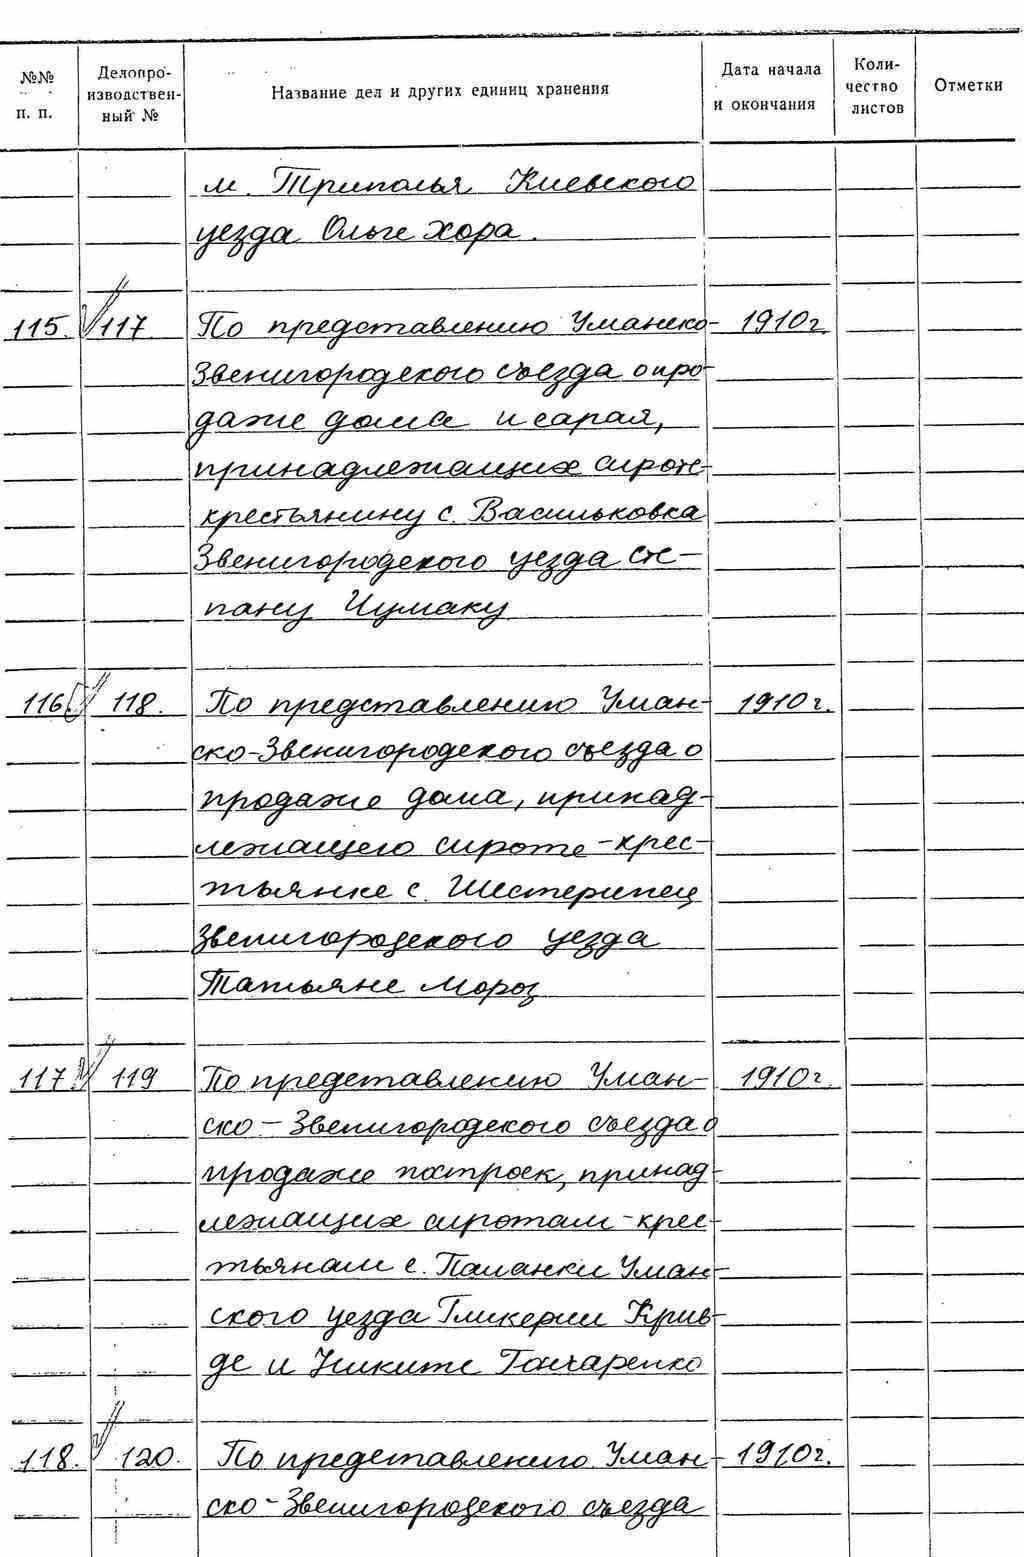 №№ п. п.
Делопроизводственный №
Название дел и других единиц хранения
Дата начала и окончания
Количество листов
Отметки
м. Триполья Киевского
уезда Ольге Хора.
115. 117 По представлению Уманско- 1910 г.
Звенигородского съезда о про-
даже дома и сарая,
принадлежащих сироте-
крестьянину с. Васильковка
Звенигородского уезда Сте-
пану Чумаку
116 118. По представлению Уман- 1910 г.
ско-Звенигородского съезда о
продаже дома, принад-
лежащего сироте-крес-
тьянке с. Шестеринец
Звенигородского уезда
Татьяне Мороз
117 119 По представлению Уман- 1910 г.
ско-Звенигородского съезда о
продаже построек, принад-
лежащих сиротам-крес-
тьянам с. Паланки Уман-
ского уезда Гликерии Крив-
де и Никите Гончаренко
118. 120. По представлению Уман- 1910 г.
ско-Звенигородского съезда